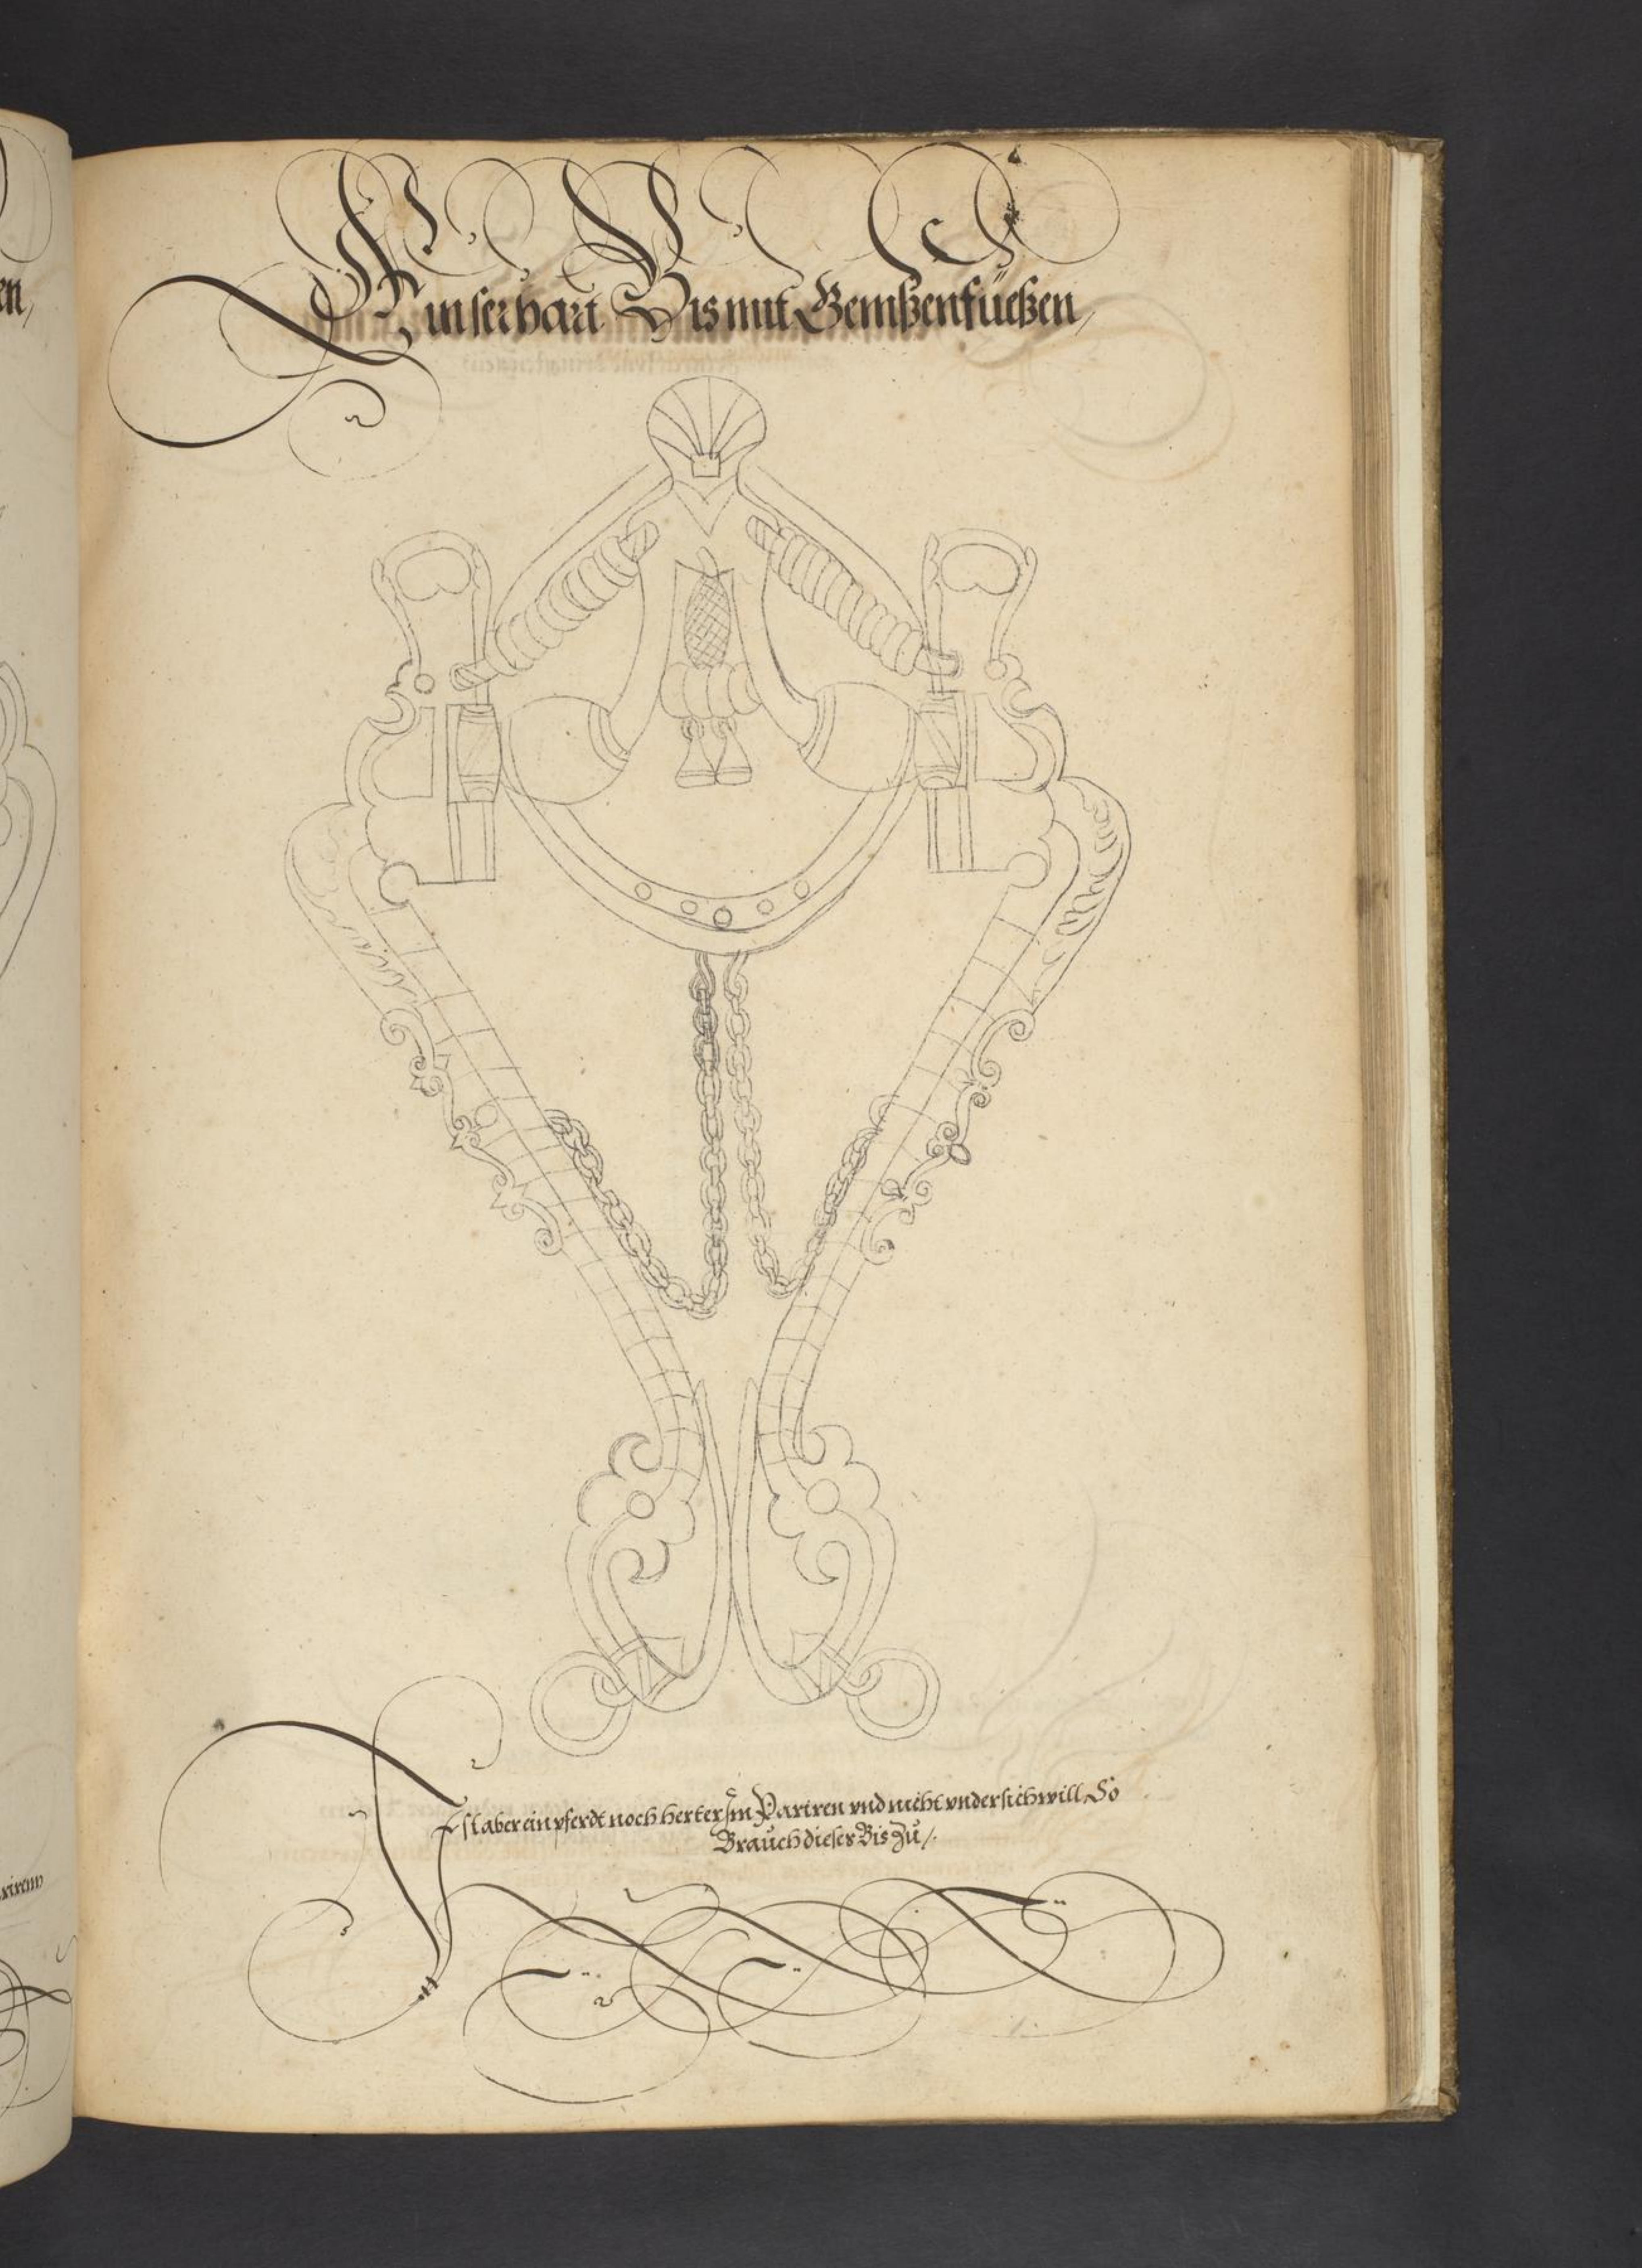 en,
Ein ser hart Bis mit Gemßenfüeßen,
Ist aber ein pferdt noch herter Im Pariren vnd nicht vndersich will So
Brauch dieser Bis Zu /.
rirenn